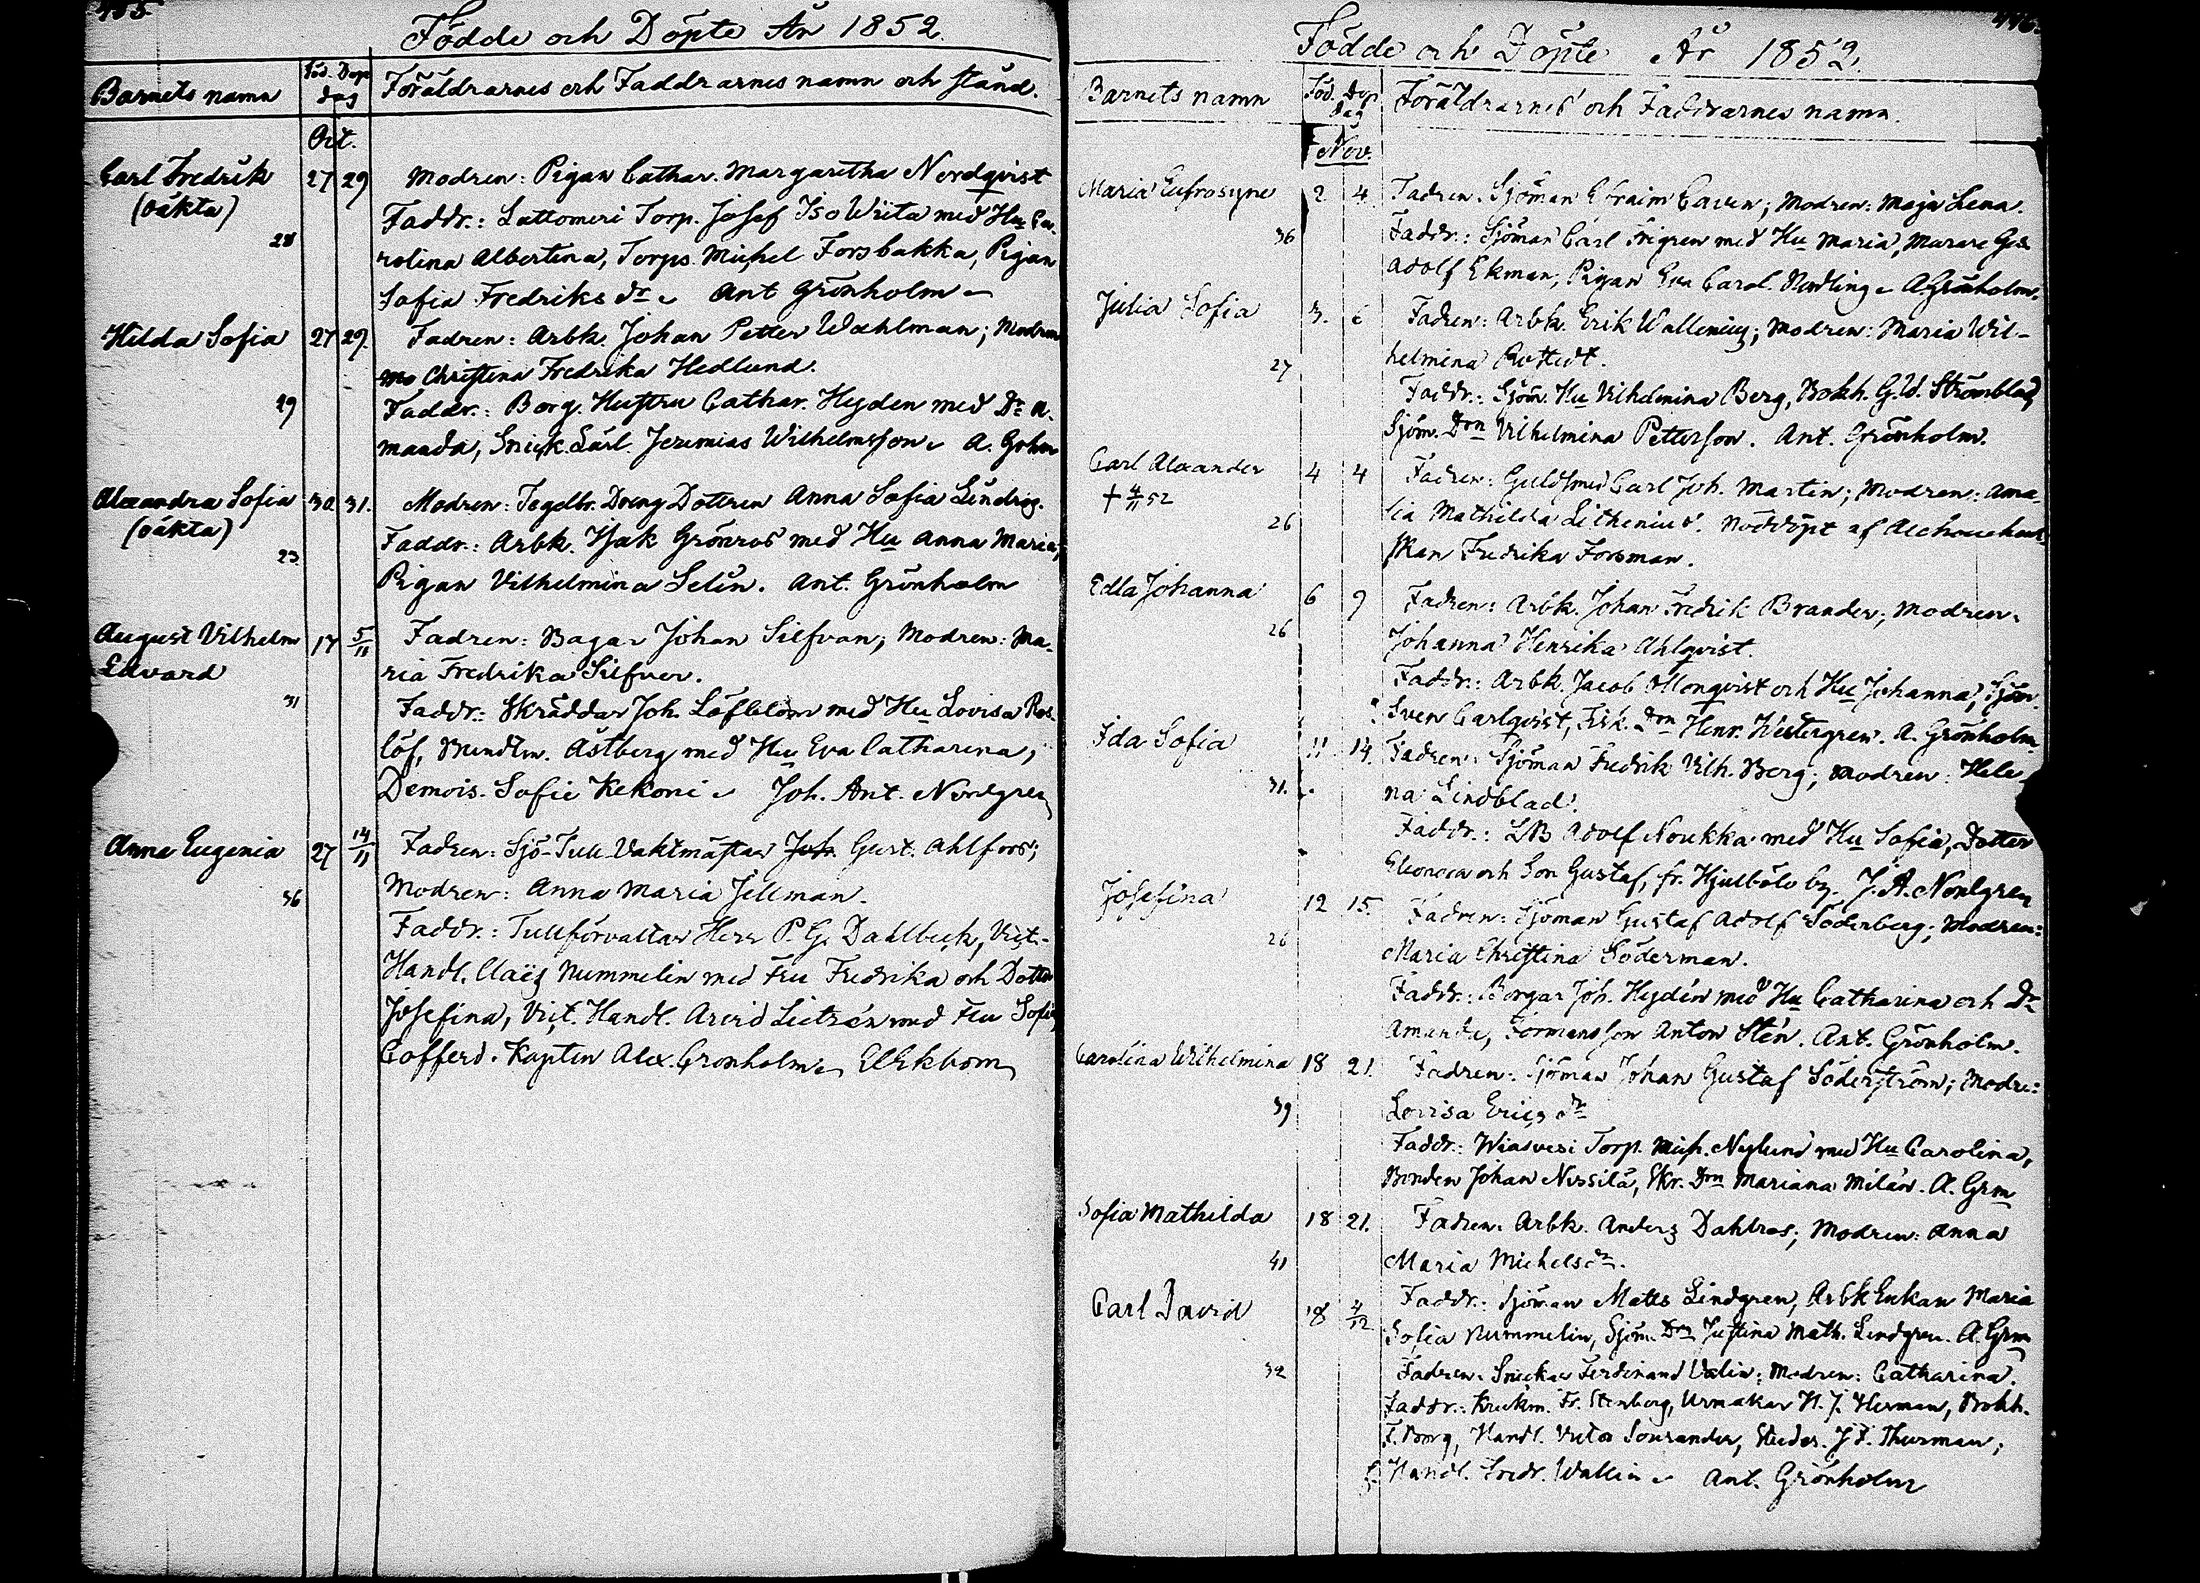 Födde och Döpte År 1852.
Barnets namn Föd. Dop dag Föräldrarnes och Faddrarnes namn och stånd.
Oct.
Carl Fredrik 27 29 Modren: Pigan Cathar. Margaretha Nordqvist
(oäkta) Faddr.: Lattomeri Torp. Josef Iso Wiita med Hu Ca-
28 rolina Albertina, Torps. Michel Forsbakka, Pigan
Sofia Fredriks dr. Ant Grönholm
Hilda Sofia 27 29. Fadren: Arbk. Johan Petter Wahlman; Modren
Christina Fredrika Hedlund.
29 Faddr.: Borg. Hustru Cathar. Heyden med Dr A-
manda, Snick. Lärl. Jeremias Wilhelmsson. A. Grhm
Alexandra Sofia 30. 31. Modren: Tegelbr. Dreng Dottren Anna Sofia Lindreg.
(oäkta) Faddr.: Arbk. Isak Grönroos med Hu Anna Maria,
23 Pigan Vilhelmina Selin. Ant. Grönholm
August Vilhelm 17 5/11 Fadren: Bagar Johan Silfvan; Modren: Ma-
Edvard ria Fredrika Silfver.
31 Faddr.: Skräddar Joh. Löfblom med Hu Lovisa Ros-
löf, Åstberg med Hu Eva Catharina,
Demois. Sofie Kekoni. Joh. Ant. Nordgren
Anna Eugenia 27 14/11 Fadren: Sjö-Tull Vaktmästar Joh. Gust. Ahlfors;
36 Modren: Anna Maria Jellman.
Faddr.: Tullförvaltar Herr P. G. Dahlbeck, Vict.
Handl. Claës Nummelin med Fru Fredrika och Dotter
Josefina, Vict. Handl. Arvid Lietzén med Fru Sofia,
Cofferd. Kapten Alex. Grönholm. Ekbom
Födde och Döpte År 1852.
Barnets namn Föd. Dop dag Föräldrarnes och Faddrarnes namn.
Nov.
Maria Eufrosyne 2 4. Fadren: Sjöman Efraim Caven; Modren: Maja Lena.
36 Faddr.: Sjöman Carl Frigren med Hu Maria, Murare Ges.
Adolf Ekman, Pigan Eva Carol. Nordling. A. Grönholm.
Julia Sofia 3. 6 Fadren: Arbk. Erik Wallenius; Modren: Maria Wil-
27 helmina
Faddr.: Sjöm. Hu Vilhelmina Berg, Bokh. G. W. Strömblad,
Sjöm. Drn Vilhelmina Petterson. Ant. Grönholm.
Carl Alexander 4 4 Fadren: Guldsmed Carl Joh. Martin; Modren: Ama-
† 4/11 52 lia Mathilda Lithenius. Nöddöpt af
26 skan Fredrika Forsman.
Edla Johanna 6 9 Fadren: Arbk. Johan Fredrik Brander; Modren:
26 Johanna Henrika Ahlqvist.
Faddr.: Arbk. Jacob Malmqvist och Hu Johanna, Sjöm.
Sven Carlqvist, Fisk. Drn Henr. Westergren. A. Grönholm
Ida Sofia 11 14. Fadren: Sjöman Fredrik Vilh. Berg; Modren: Hele-
31. na Lindblad.
Faddr.: LB Adolf Noukka med Hu Sofia, Dotter
Eleonora och Son Gustaf, fr. Hjulbölö by. J. A. Nordgren
Josefina 12 15. Fadren: Sjöman Gustaf Adolf Söderberg; Modren:
26 Maria Christina Söderman.
Faddr.: Borgar Joh. Heydén med Hu Catharina och Dr
Amanda, Formansson Anton Stén. Ant. Grönholm.
Carolina Wilhelmina 18 21. Fadren: Sjöman Johan Gustaf Söderström; Modre:
39 Lovisa Erics dr
Faddr: Wiasvesi Torp. Mich. Nylund med Hu Carolina,
Bonden Johan Nissilä, Skr. Drn Mariana Milán. A. Grm
Sofia Mathilda 18 21. Fadren: Arbk. Anders Dahlros; Modren: Anna
41 Maria Michelsdr.
Faddr.: Sjöman Matts Lindgren, Arbk Enkan Maria
Sofia Nummelin, Sjöm. Drn Justina Math. Lindgren. A. Grm
Carl David 18 4/12 Fadren: Snickar Ferdinand Valin; Modren: Catharina.
32 Faddr.: Fr. Stenberg, Urmakar H. J. Herman, Bokh.
F. Borg, Handl. Victor Sourander, Studer. J F. Thurman;
Handl. Fredr. Wallin. Ant. Grönholm